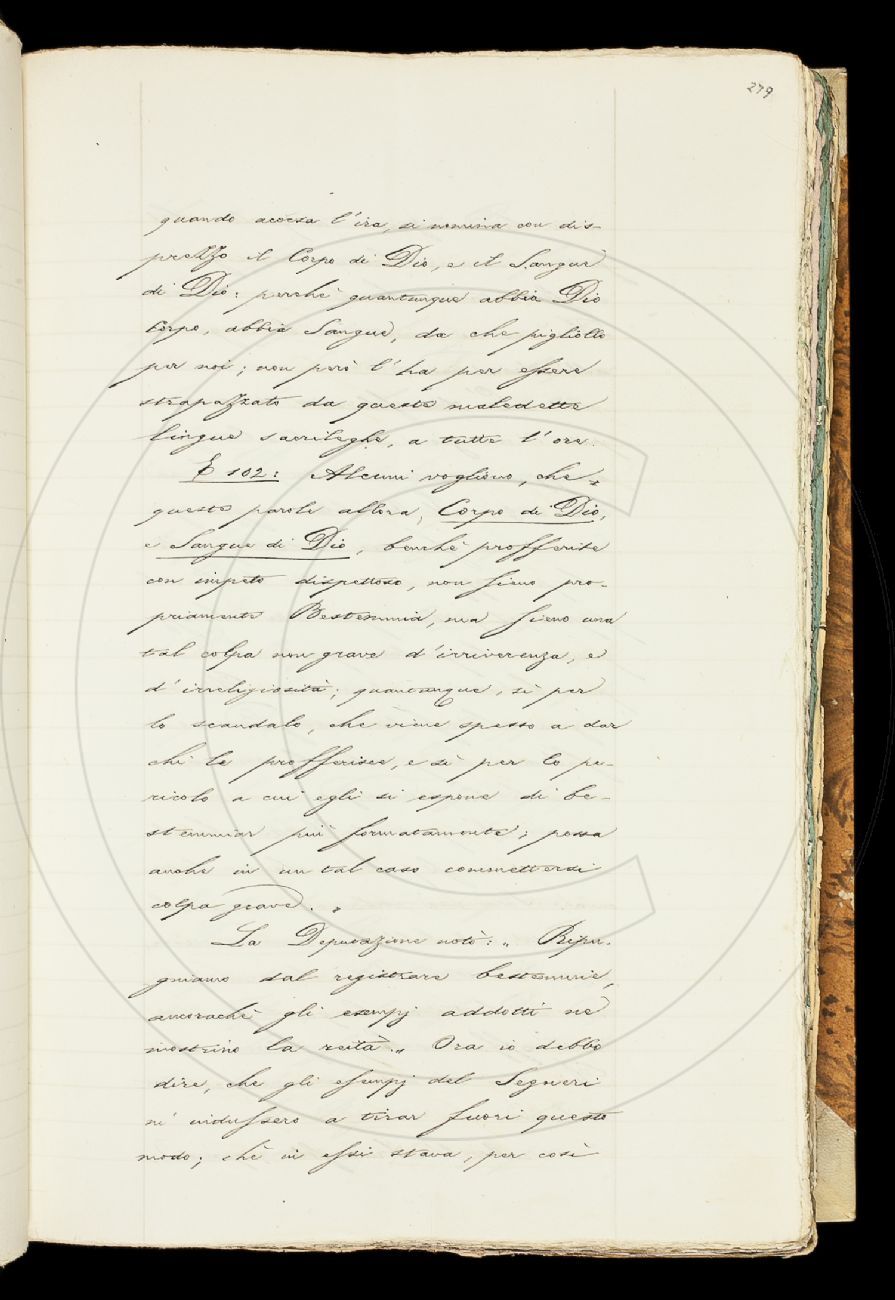 279
quando accesa l'ira, si nomina con dis-
prezzo il Corpo di Dio, e il Sangue
di Dio: perchè quantunque abbia Dio
Corpo, abbia Sangue, da che pigliollo
per noi; non però l'ha per essere
strapazzato da queste maledette
lingue sacrileghe, a tutte l'ore.
E 102: Alcuni vogliono, che
queste parole allora, Corpo di Dio,
e Sangue di Dio, benchè profferite
con impeto dispettoso, non sieno pro-
priamente Bestemmia, ma sieno una
tal colpa non grave d'irriverenza, e
d'irreligiosità; quantunque, sì per
lo scandalo, che viene spesso a dar
chi le profferisce, e sì per lo pe-
ricolo a cui egli si espone di be-
stemmiar più formatamente; possa
anche in un tal caso commettersi
colpa grave. „
La Deputazione notò: „ Ripu-
gniamo dal registrare bestemmie,
ancorachè gli esempj addotti ne
mostrino la reità. „ Ora io debbo
dire, che gli essempj del Segneri
m'indussero a tirar fuori questo
modo; chè in essi stava, per così